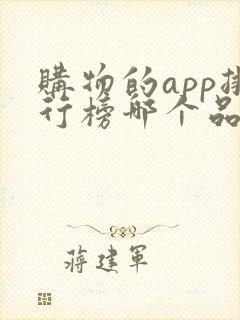 購物的app排
行榜哪个品
蔣建軍